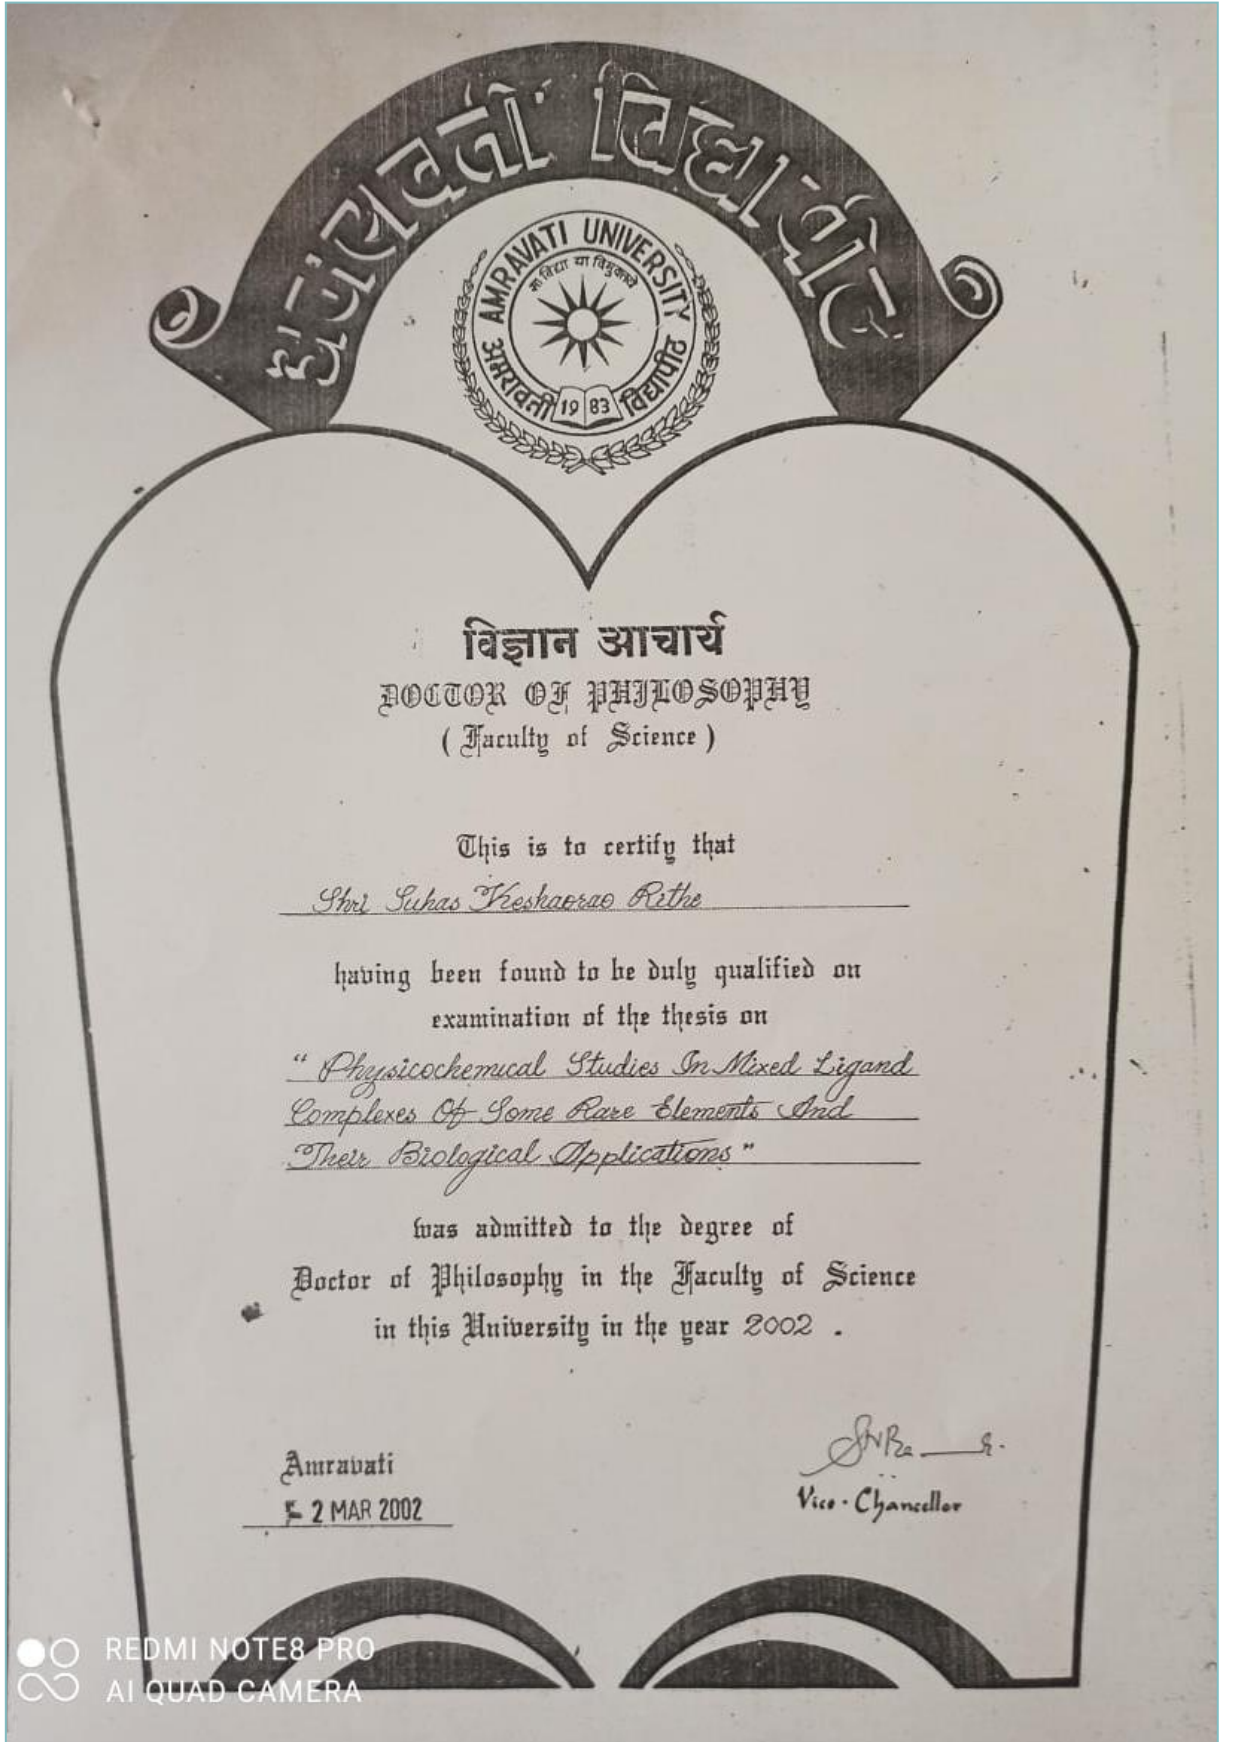 अमरावती विद्यापीठ
AMRAVATI UNIVERSITY
सा विद्या या विमुक्तये
अमरावती विद्यापीठ
19 83
विज्ञान आचार्य
DOCTOR OF PHILOSOPHY
( Faculty of Science )
This is to certify that
Shri Suhas Keshaorao Rithe
having been found to be duly qualified on
examination of the thesis on
" Physicochemical Studies In Mixed Ligand
Complexes Of Some Rare Elements And
Their Biological Applications "
was admitted to the degree of
Doctor of Philosophy in the Faculty of Science
in this University in the year 2002 .
Amravati
2 MAR 2002
Vice - Chancellor
REDMI NOTE8 PRO
AI QUAD CAMERA